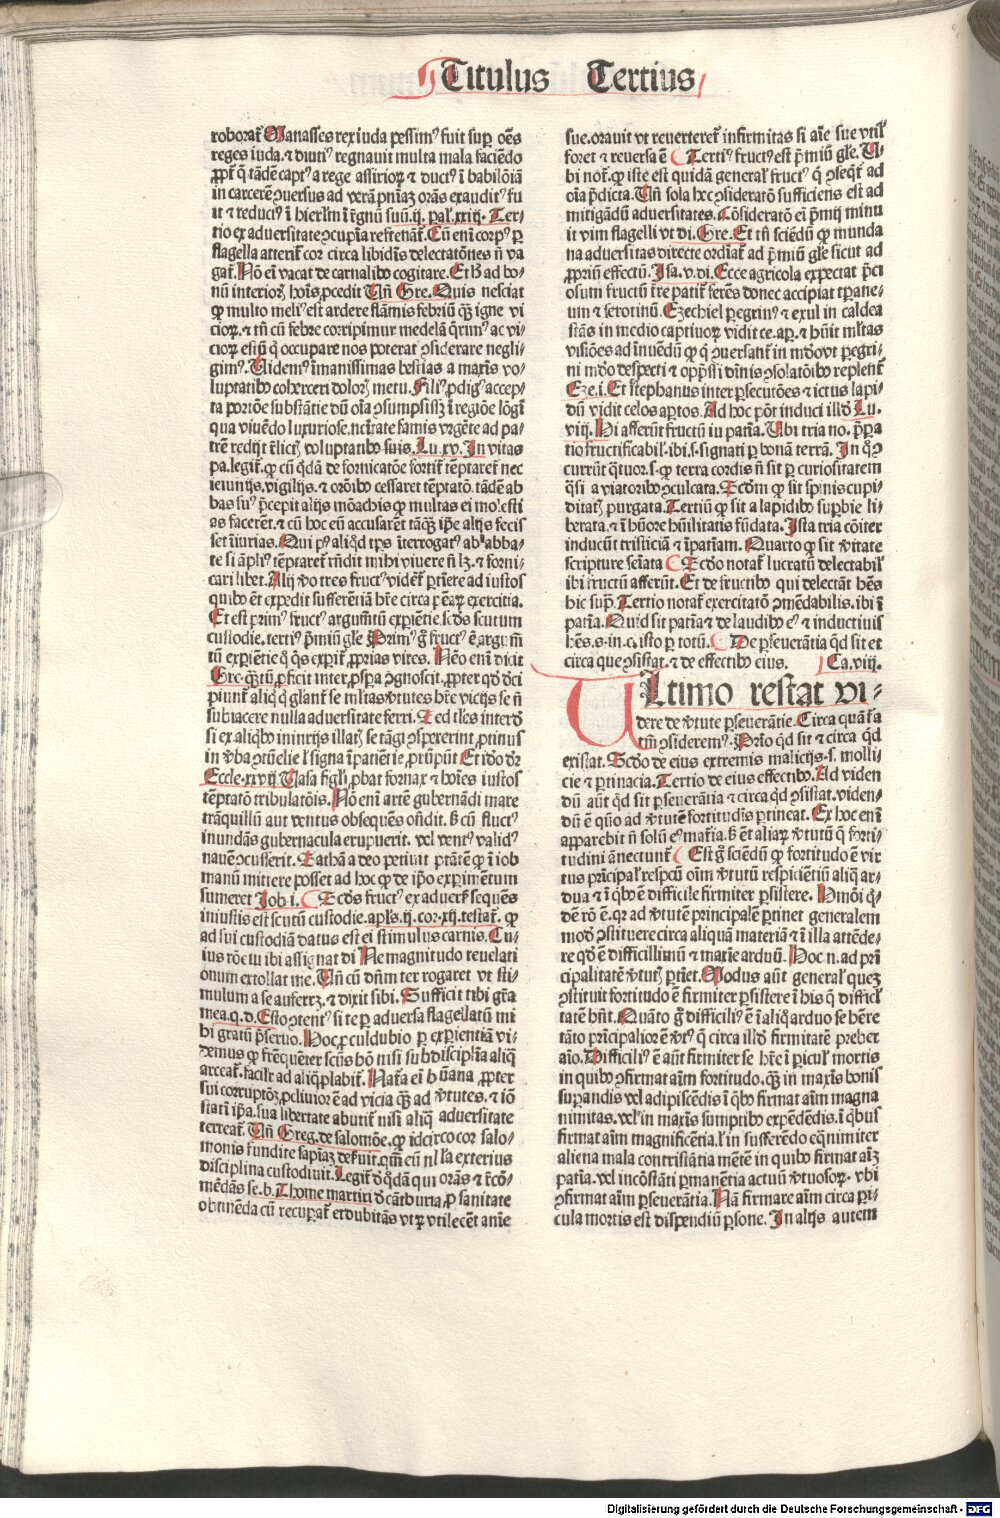 Titulus Tertius
roborat᷑ Manasses rex iuda pessim⁹ fuit sup oēs
reges iuda. ⁊ diuti⁹ regnauit multa mala faciēdo
ꝓpt̄ q̄ tādē capt⁹ a rege assirioꝝ ⁊ duct⁹ ī babilōiā
in carcerē ꝯuersus ad verā pn̄iaȝ orās exaudit⁹ fu
it ⁊ reduct⁹ ī hierl'm ī rgnū suū. ij. pal'. xxiij. Ter⸗
tio ex aduersitate ꝯcupīa refrenat᷑. Cū eni corp⁹ ꝑ
flagella atterit᷑ cor circa libidīs delectatōnes n̄ va
gat᷑. Nō eī vacat de carnalibꝰ cogitare. Et h̄ ad bo⸗
nū interioꝝ hoīs ꝓcedit Un̄ Gre. Quis nesciat
ꝙ multo meli⁹ est ardere flāmis febriū qȝ igne vi
cioꝝ. ⁊ tn̄ cū febre corripimur medelā q̄rim⁹ ac vi⸗
cioꝝ estū q̄ occupare nos poterat ꝯsiderare negli⸗
gim⁹. Uidem⁹ īmanissimas bestias a maxīs vo⸗
luptatibꝰ coherceri doloꝝ metu. Fili⁹ ꝓdig⁹ accep⸗
ta portiōe substātie dū oīa ꝯsumpsisȝ ī regiōe lōgī
qua viuēdo luxuriose. nc̄itate famis vrgēte ad pa⸗
trē redijt r̄lictꝭ voluptatibꝰ suis. Lu. xv. In vitas
pa. legit᷑. ꝙ cū q̄dā de fornicatōe fortit᷑ tēptaret᷑ nec
ieiunijs. vigilijs. ⁊ orōibꝰ cessaret tēptatō. tādē ab
bas su⁹ p̄cepit alijs mōachis ꝙ multas ei molesti
as facerēt. ⁊ cū hoc eū accusarēt tāqȝ ip̄e alijs fecis
set īiurias. Qui p⁹ aliq̄d tp̄s īterrogat⁹ ab abba⸗
te si āpli⁹ tēptaret᷑ rn̄dit mihi viuere n̄ lȝ. ⁊ forni⸗
cari libet. Alij v̄o tres fruct⁹ vident᷑ ꝑtīere ad iustos
quibꝰ ēt expedit sufferētiā hr̄e circa ꝑ eaꝝ exercitia.
Et est prim⁹ fruct⁹ argumētū experiētie. scd̄s scutum
custodie. terti⁹ p̄miū gl'e Prim⁹ g̅ fruct⁹ ē argum̄
tū experiētie q̄ q̄s experit᷑ ꝓprias vires. Nēo eni dicit
Gre. quātū ꝓficit inter ꝓspa ꝯgnoscit. ꝓpter qd̄ dc̄i
piunt᷑ aliq̄ q̄ glant᷑ se ml'tas v̄tutes hr̄e victijs se n̄
subiacere nulla aduersitate ferri. Sed tl'es interd̄
si ex aliq̄bꝰ iniurijs illatꝭ se tāgi ꝯspexerint ꝓtinus
in v̄ba ꝯtūelie l' signa īpatiētie ꝓrūpūt Et iō dr̄
Eccle. xxvij. Uasa figl'i ꝓbat fornax ⁊ hoīes iustos
tēptatō tribulatōis. Nō eni artē gubernādi mare
trāquillū aut ventus obsequēs oñdit. ß cū fluct⁹
inundās gubernacula erupuerit. vel vent⁹ valid⁹
nauē ꝯcusserit. Sathā a deo petiuit ptātē ꝙ ī iob
manū mittere posset ad hoc ꝙ de ip̄o experimētum
sumeret Job i. Scd̄s fruct⁹ ex aduers᷑ sequēs
iniustis est scutū custodie. apl's. ij. cor. xij. testat᷑. ꝙ
ad sui custodiā datus est ei stimulus carnis. Cu⸗
ius rōe tu ibi assignat di Ne magnitudo reuelati
onum extollat me. Un̄ cū dn̄m ter rogaret vt sti⸗
mulum a se auferrȝ. ⁊ dixit sibi. Sufficit tibi gr̄a
mea. q. d. Esto ꝯtent⁹ si te ꝑ aduersa flagellatū mi
bi gratū p̄seruo. Hoc ꝓculdubio ꝑ experientiā vi⸗
demus ꝙ freq̄uēter scūs hō nisi sub disciplīa aliq̄
arceat᷑. facilr̄ ad aliq̄ ꝓlabit᷑. Nat̄a eī hūana ꝓpter
sui corruptōȝ ꝓcliuior ē ad vicia qȝ ad v̄tutes. ⁊ iō
stati ip̄a sua libertate abutit᷑ nisi aliq̄ aduersitate
terreat᷑. Un̄ Greg. de salomōe. ꝙ idcirco cor salo⸗
monis fundite sapīaȝ deseruit. qm̄ eū nl'la exterius
disciplina custodiuit. Legit᷑ d' q̄dā qui orās ⁊ cōmē⸗
mēdās se. b. Thome martiri d' cātburia ꝓ sanitate
obtinēda cū recupat᷑ et dubitās vtꝝ vtile cēt anīe
sue. orauit vt reuerteret᷑ infirmitas si aīe sue vtil'
foret ⁊ reuersa ē Terti⁹ fruct⁹ est p̄miū gl'e. Ti⸗
bi not᷑. ꝙ iste est quidā general' fruct⁹ q̄ ꝯseqt᷑ ad
oīa p̄dicta. Un̄ sola hec ꝯsideratō sufficiens est ad
mitigādū aduersitates. Cōsideratō ei p̄mij minu
it vim flagelli vt di. Gre. Et tn̄ sciēdū ꝙ munda
na aduersitas directe ordīat᷑ ad p̄miū gl'e sicut ad
ꝓpriū effectū. Jsa. v. di. Ecce agricola expectat p̄ci
osum fructū tr̄e patit᷑ ferēs donec accipiat tꝑane⸗
um ⁊ serotinū. Ezechiel ꝑegrin⁹ ⁊ exul in caldea
stās in medio captiuoꝝ vidit ce. ap. ⁊ hūit ml'tas
visiōes ad īnuēdū ꝙ q̄ ꝯuersant᷑ in mūdo vt ꝑegri⸗
ni mūdo despecti ⁊ opp̄ssi dīnis ꝯsolatōibꝰ replent᷑
Eze. i. Et stephanus inter ꝑsecutōes ⁊ ictus lapi⸗
dū vidit celos aꝑtos. Ad hoc pōt induci illd̄ Lu.
viij. Hi afferūt fructū iu patīa. Ubi tria no. p̄pa
tio fructificabil'. ibi. s. signati ꝑ bonā terrā. In qᵒ ꝯ
currūt q̄tuor. s. ꝙ terra cordis n̄ sit ꝑ curiositatem
q̄si a viatoribꝰ ꝯculcata. Scd̄m ꝙ sit spīnis cupi⸗
ditatꝭ purgata. Tertiū ꝙ sit a lapidibꝰ supbie li⸗
berata. ⁊ ī hūore hūilitatis fūdata. Ista tria cōiter
inducūt tristiciā ⁊ īpatīam. Quarto ꝙ sit v̄itate
scripture sc̄iata Scd̄o notat᷑ lucratū delectabil'
ibi fructū afferūt. Et de fructibꝰ qui delectāt hēs
hic sup̄. Tertio notat᷑ exercitatō ꝯmēdabilis. ibi ī
patīa. Quid sit patīa ⁊ de laudibꝰ eiᵒ ⁊ inductiuis
hēs. s. in. c. isto ꝑ totū. De ꝑseuerātia qd̄ sit et
circa que ꝯsistat. ⁊ de effectibꝰ eius. Ca. viij.
ULtimo restat vi⸗
dere de v̄tute ꝑseuerātie. Circa quā t̄a
tm̄ ꝯsiderem⁹. Prīo qd̄ sit ⁊ circa qd̄
existat. Scd̄o de eius extremis malicijs. s. molli
cie ⁊ ꝑtinacia. Tertio de eius effectibꝰ. Ad viden
dū aūt qd̄ sit ꝑseuerātia ⁊ circa qd̄ ꝯsistat. viden⸗
dū ē quō ad v̄tutē fortitudīs ꝑtineat. Ex hoc eni
apparebit n̄ solū e⁹ mat̄ia. ß ēt aliaꝝ v̄tutū q̄ forti⸗
tudini ānectunt᷑ Est g̅ sciēdū ꝙ fortitudo ē vir
tus prīcipal' respcū oīm v̄tutū respiciētiū aliq̄ ar⸗
dua ⁊ ī q̄bꝰ ē difficile firmiter ꝑsistere. Hmōi q̄⸗
dē rō ē. qꝛ ad v̄tutē principalē ꝑtinet generalem
modū ꝯstituere circa aliquā materiā ⁊ ī illa attēde⸗
re qd̄ ē difficillimū ⁊ maxīe arduū. Hoc n. ad prī
cipalitatē v̄tutꝭ ꝑtiet. Modus aūt general' queȝ
ꝯstituit fortitudo ē firmiter ꝑsistere ī his q̄ difficl'
tatē hn̄t. Quāto g̅ difficili⁹ ē ī aliq̄ arduo se hēre
tāto prīcipalior ē v̄t⁹ q̄ circa illd̄ firmitatē prebet
aīo. Difficili⁹ ē aūt firmiter se hr̄e ī piculꝭ mortis
in quibꝰ ꝯfirmat aīm fortitudo. qȝ in maxīs bonis
suꝑandis vel adipiscēdis ī q̄bꝰ firmat aīm magna
nimitas. vel' in maxīs sumptibꝰ expēdēdis. ī q̄bus
firmat aīm magnificētia. l' in sufferēdo eq̄nimiter
aliena mala contristātia mētē in quibꝰ firmat aīȝ
patīa. vel incōstāti ꝑmanētia actuū v̄tuosoꝝ. vbi
ꝯfirmat aīm ꝑseuerātia. Nā firmare aīm circa pi⸗
cula mortis est dispendiū ꝑsone. In alijs autem
Digitalisierung gefördert durch die Deutsche Forschungsgemeinschaft - DFG